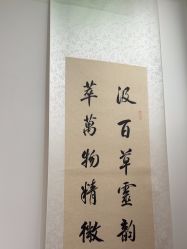 汲百草靈韵
萃萬物精微